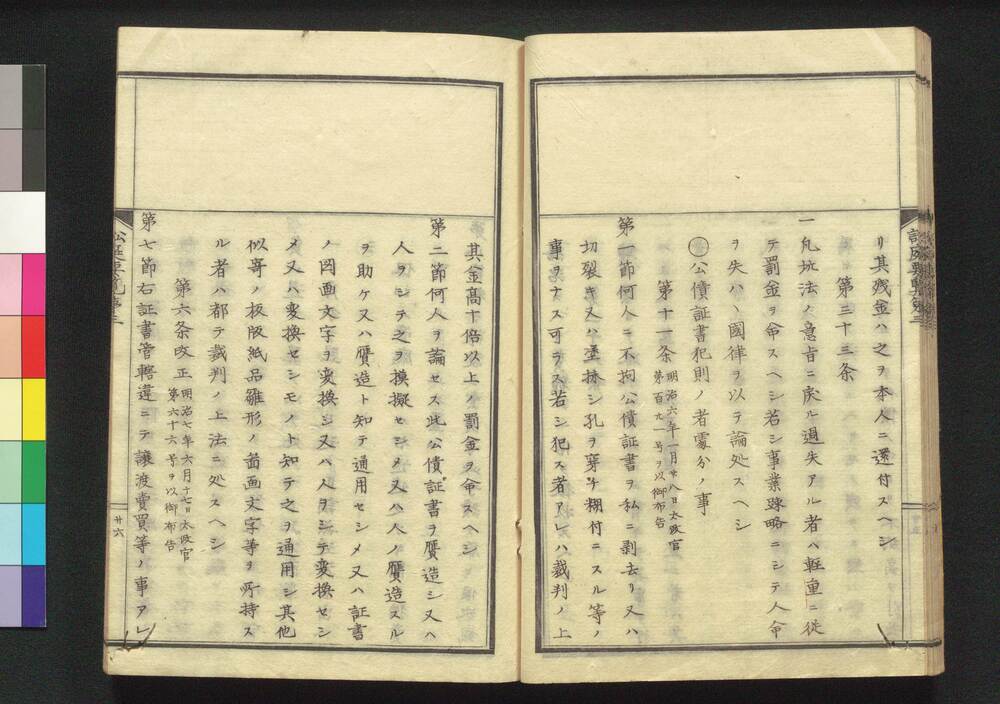 リ其残金ハ之ヲ本人ニ還付スヘシ
第三十三条
一凡坑法ノ意旨ニ戻ル過失アル者ハ軽重ニ従
テ罰金ヲ命スヘシ若シ事業疎略ニシテ人命
ヲ失ハヽ国律ヲ以テ論処スヘシ
○公債証書犯則ノ者処分ノ事
第十一条
明治六年一月廿八日太政官
第百九一号ヲ以御布告
第一節何人ニ不拘公債証書ヲ私ニ剥去リ又ハ
切裂キ又ハ塗抹シ孔ヲ穿チ糊付ニスル等ノ
事ヲナス可ラス若シ犯ス者アレハ裁判ノ上
其金高十倍以上ノ罰金ヲ命スヘシ
第二節何人ヲ論セス此公債証書ヲ贋造シ又ハ
人ヲシテ之ヲ摸擬セシメ又ハ人ノ贋造スル
ヲ助ケ又ハ贋造ト知テ通用セシメ又ハ証書
ノ図画文字ヲ変換シ又ハ人ヲシテ変換セシ
メ又ハ変換セシモノト知テ之ヲ通用シ其他
似寄ノ板版紙品雛形ノ啚画文字等ヲ所持ス
ル者ハ都テ裁判ノ上法ニ処スヘシ
第六条改正
明治七年六月十七日太政官
第六十六号ヲ以御布告
第七節右証書管轄違ニテ譲渡賣買等ノ事アレ
廿六